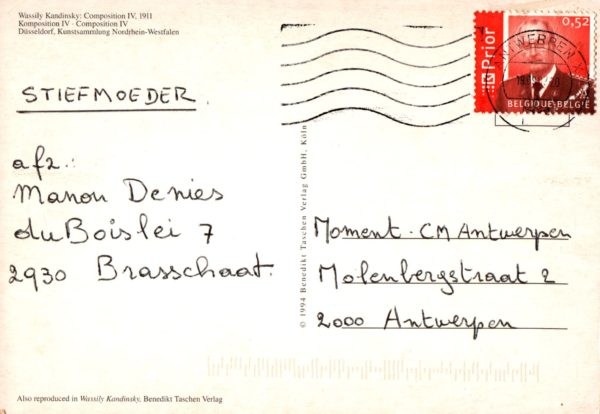 Wassily Kandinsky: Composition IV, 1911
Komposition IV · Composition IV
Düsseldorf, Kunstsammlung Nordrhein-Westfalen
STIEFMOEDER.
afz.:
Manon Denies
du Boislei 7
2930 Brasschaat.
© 1994 Benedikt Taschen Verlag GmbH, Köln
Prior
0,52
ANTWERPEN X
BELGIQUE·BELGIË
Moment - CM Antwerpen
Molenbergstraat 2
2000 Antwerpen
Also reproduced in Wassily Kandinsky, Benedikt Taschen Verlag